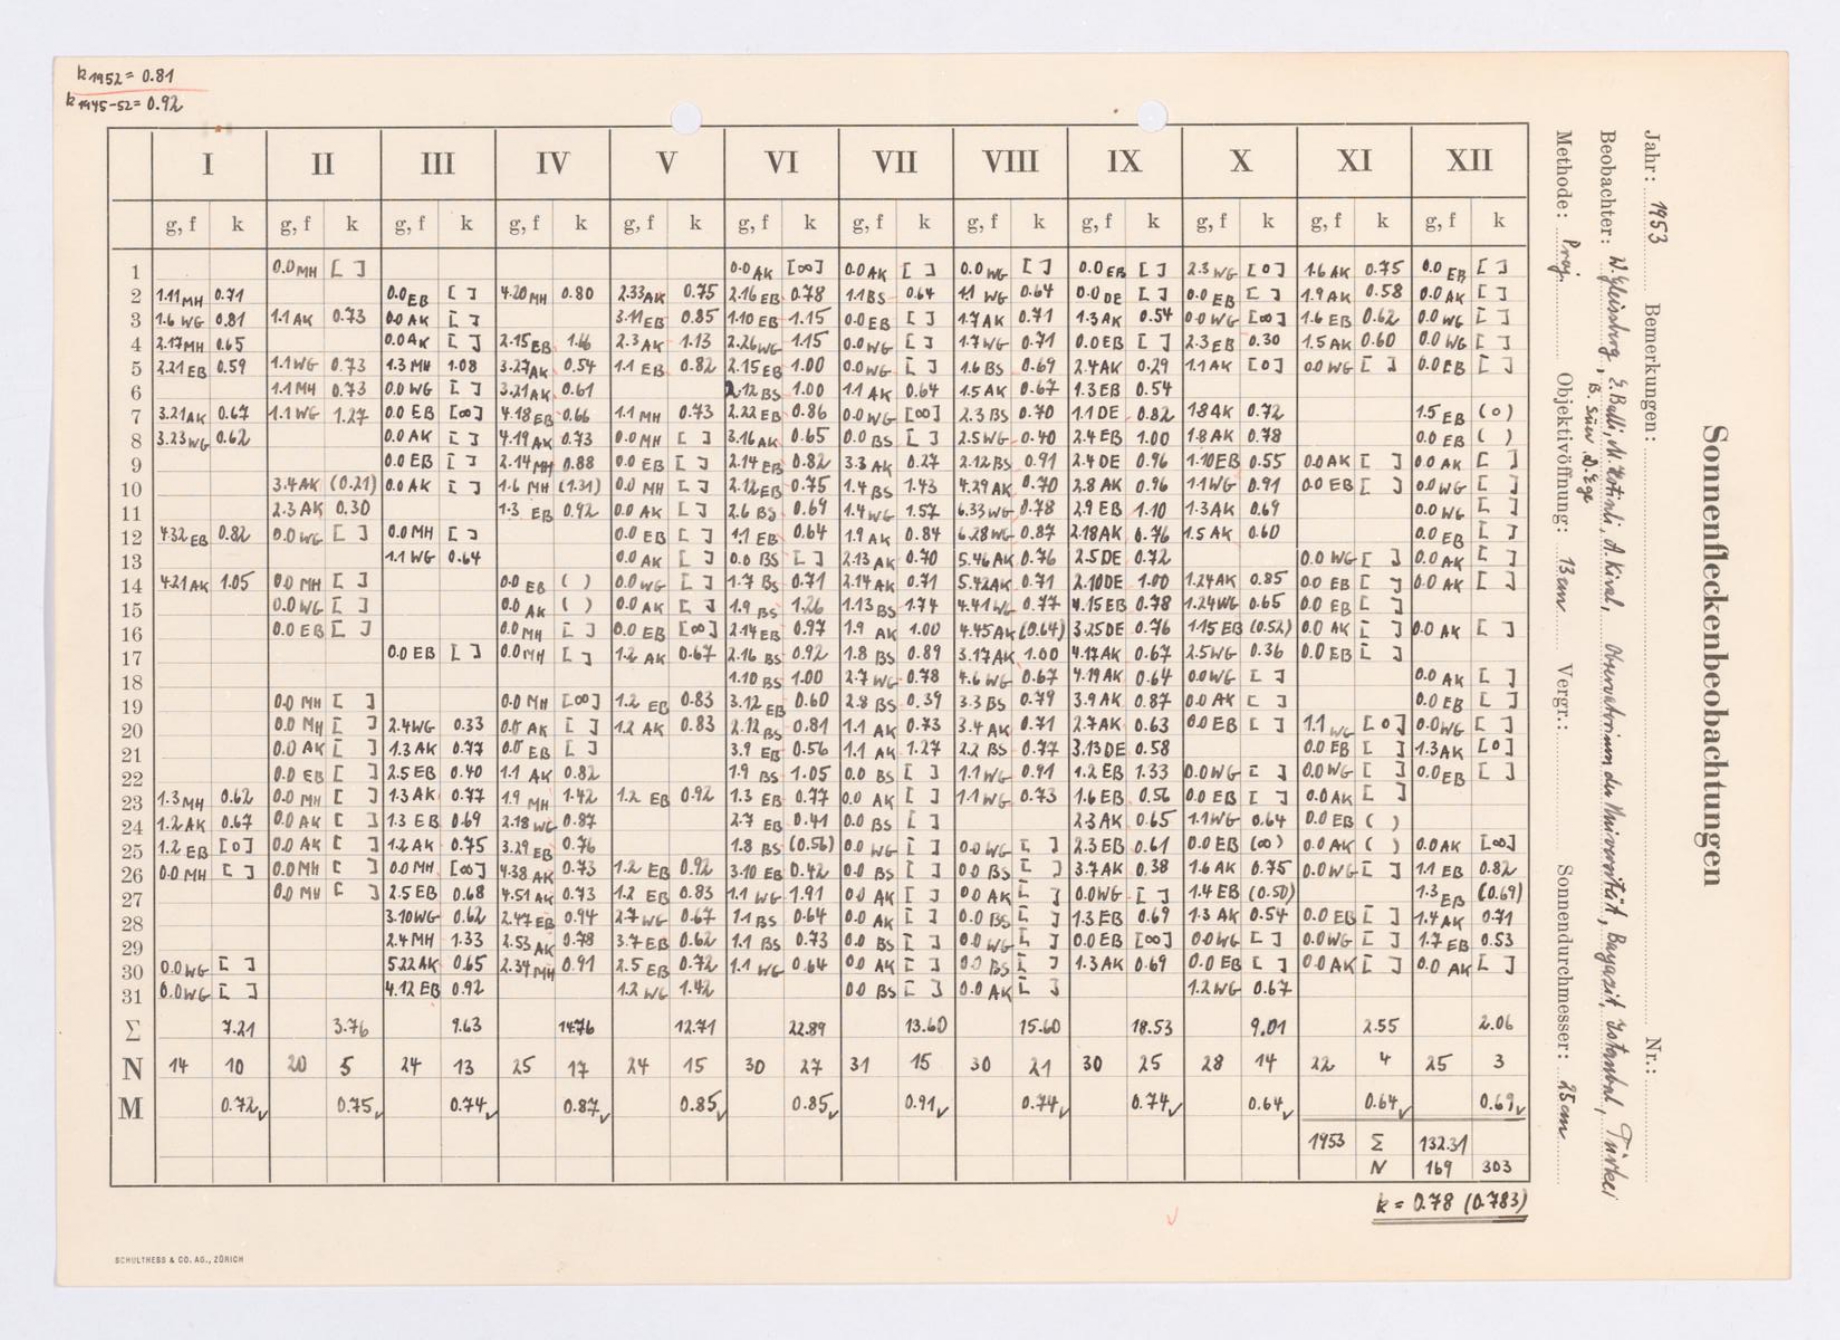 k1952 = 0.81
k1945-52 = 0.92
Sonnenfleckenbeobachtungen
Jahr: 1953 Bemerkungen: Nr.:
Beobachter: W. Gleissberg, E. Balli, M. Hotinli, A. Kiral, Observatorium der Universität, Bayazit, Istanbul, Türkei
B. Süer D. Ege
Methode: Proj. Objektivöffnung: 13 cm Vergr.: Sonnendurchmesser: 25 cm
I II III IV V VI VII VIII IX X XI XII
g, f k g, f k g, f k g, f k g, f k g, f k g, f k g, f k g, f k g, f k g, f k g, f k
1 0.0 MH [ ] 0.0 AK [∞] 0.0 AK [ ] 0.0 WG [ ] 0.0 EB [ ] 2.3 WG [0] 1.6 AK 0.75 0.0 EB [ ]
2 1.11 MH 0.71 0.0 EB [ ] 4.20 MH 0.80 2.33 AK 0.75 2.16 EB 0.78 1.1 BS 0.64 1.1 WG 0.64 0.0 DE [ ] 0.0 EB [ ] 1.9 AK 0.58 0.0 AK [ ]
3 1.6 WG 0.81 1.1 AK 0.73 0.0 AK [ ] 3.11 EB 0.85 1.10 EB 1.15 0.0 EB [ ] 1.7 AK 0.71 1.3 AK 0.54 0.0 WG [∞] 1.6 EB 0.62 0.0 WG [ ]
4 2.17 MH 0.65 0.0 AK [ ] 2.15 EB 1.16 2.3 AK 1.13 2.26 WG 1.15 0.0 WG [ ] 1.7 WG 0.71 0.0 EB [ ] 2.3 EB 0.30 1.5 AK 0.60 0.0 WG [ ]
5 2.21 EB 0.59 1.1 WG 0.73 1.3 MH 1.08 3.27 AK 0.54 1.1 EB 0.82 2.15 EB 1.00 0.0 WG [ ] 1.6 BS 0.69 2.4 AK 0.29 1.1 AK [0] 0.0 WG [ ] 0.0 EB [ ]
6 1.1 MH 0.73 0.0 WG [ ] 3.21 AK 0.61 2.12 BS 1.00 1.1 AK 0.64 1.5 AK 0.67 1.3 EB 0.54
7 3.21 AK 0.67 1.1 WG 1.27 0.0 EB [∞] 4.18 EB 0.66 1.1 MH 0.73 2.22 EB 0.86 0.0 WG [∞] 2.3 BS 0.70 1.1 DE 0.82 1.8 AK 0.72 1.5 EB (0)
8 3.23 WG 0.62 0.0 AK [ ] 4.19 AK 0.73 0.0 MH [ ] 3.16 AK 0.65 0.0 BS [ ] 2.5 WG 0.40 2.4 EB 1.00 1.8 AK 0.78 0.0 EB ( )
9 0.0 EB [ ] 2.14 MH 0.88 0.0 EB [ ] 2.14 EB 0.82 3.3 AK 0.27 2.12 BS 0.91 2.4 DE 0.96 1.10 EB 0.55 0.0 AK [ ] 0.0 AK [ ]
10 3.4 AK (0.21) 0.0 AK [ ] 1.6 MH (1.31) 0.0 MH [ ] 2.12 EB 0.75 1.4 BS 1.43 4.29 AK 0.70 2.8 AK 0.96 1.1 WG 0.91 0.0 EB [ ] 0.0 WG [ ]
11 2.3 AK 0.30 1.3 EB 0.92 0.0 AK [ ] 2.6 BS 0.69 1.4 WG 1.57 6.33 WG 0.78 2.9 EB 1.10 1.3 AK 0.69 0.0 WG [ ]
12 4.32 EB 0.82 0.0 WG [ ] 0.0 MH [ ] 0.0 EB [ ] 1.1 EB 0.64 1.9 AK 0.84 6.28 WG 0.87 2.18 AK 0.76 1.5 AK 0.60 0.0 EB [ ]
13 1.1 WG 0.64 0.0 AK [ ] 0.0 BS [ ] 2.13 AK 0.70 5.46 AK 0.76 2.5 DE 0.72 0.0 WG [ ] 0.0 AK [ ]
14 4.21 AK 1.05 0.0 MH [ ] 0.0 EB ( ) 0.0 WG [ ] 1.7 BS 0.71 2.14 AK 0.71 5.42 AK 0.71 2.10 DE 1.00 1.24 AK 0.85 0.0 EB [ ] 0.0 AK [ ]
15 0.0 WG [ ] 0.0 AK ( ) 0.0 AK [ ] 1.9 BS 1.26 1.13 BS 1.74 4.41 WG 0.77 4.15 EB 0.78 1.24 WG 0.65 0.0 EB [ ]
16 0.0 EB [ ] 0.0 MH [ ] 0.0 EB [∞] 2.14 EB 0.97 1.9 AK 1.00 4.45 AK (0.64) 3.25 DE 0.76 1.15 EB (0.52) 0.0 AK [ ] 0.0 AK [ ]
17 0.0 EB [ ] 0.0 MH [ ] 1.2 AK 0.67 2.16 BS 0.92 1.8 BS 0.89 3.17 AK 1.00 4.17 AK 0.67 2.5 WG 0.36 0.0 EB [ ]
18 1.10 BS 1.00 2.7 WG 0.78 4.6 WG 0.67 4.19 AK 0.64 0.0 WG [ ] 0.0 AK [ ]
19 0.0 MH [ ] 0.0 MH [∞] 1.2 EB 0.83 3.12 EB 0.60 2.8 BS 0.39 3.3 BS 0.79 3.9 AK 0.87 0.0 AK [ ] 0.0 EB [ ]
20 0.0 MH [ ] 2.4 WG 0.33 0.0 AK [ ] 1.2 AK 0.83 2.12 BS 0.81 1.1 AK 0.73 3.4 AK 0.71 2.7 AK 0.63 0.0 EB [ ] 1.1 WG [0] 0.0 WG [ ]
21 0.0 AK [ ] 1.3 AK 0.77 0.0 EB [ ] 3.9 EB 0.56 1.1 AK 1.27 2.2 BS 0.77 3.13 DE 0.58 0.0 EB [ ] 1.3 AK [0]
22 0.0 EB [ ] 2.5 EB 0.40 1.1 AK 0.82 1.9 BS 1.05 0.0 BS [ ] 1.1 WG 0.91 1.2 EB 1.33 0.0 WG [ ] 0.0 WG [ ] 0.0 EB [ ]
23 1.3 MH 0.62 0.0 MH [ ] 1.3 AK 0.77 1.9 MH 1.42 1.2 EB 0.92 1.3 EB 0.77 0.0 AK [ ] 1.1 WG 0.73 1.6 EB 0.56 0.0 EB [ ] 0.0 AK [ ]
24 1.2 AK 0.67 0.0 AK [ ] 1.3 EB 0.69 2.18 WG 0.87 2.7 EB 0.41 0.0 BS [ ] 2.3 AK 0.65 1.1 WG 0.64 0.0 EB ( )
25 1.2 EB [0] 0.0 AK [ ] 1.2 AK 0.75 3.29 EB 0.76 1.8 BS (0.56) 0.0 WG [ ] 0.0 WG [ ] 2.3 EB 0.61 0.0 EB (∞) 0.0 AK ( ) 0.0 AK [∞]
26 0.0 MH [ ] 0.0 MH [ ] 0.0 MH [∞] 4.38 AK 0.73 1.2 EB 0.92 3.10 EB 0.42 0.0 BS [ ] 0.0 BS [ ] 3.7 AK 0.38 1.6 AK 0.75 0.0 WG [ ] 1.1 EB 0.82
27 0.0 MH [ ] 2.5 EB 0.68 4.51 AK 0.73 1.2 EB 0.83 1.1 WG 1.91 0.0 AK [ ] 0.0 AK [ ] 0.0 WG [ ] 1.4 EB (0.50) 1.3 EB (0.69)
28 3.10 WG 0.62 2.47 EB 0.94 2.7 WG 0.67 1.1 BS 0.64 0.0 AK [ ] 0.0 BS [ ] 1.3 EB 0.69 1.3 AK 0.54 0.0 EB [ ] 1.4 AK 0.71
29 2.4 MH 1.33 2.53 AK 0.78 3.7 EB 0.62 1.1 BS 0.73 0.0 BS [ ] 0.0 WG [ ] 0.0 EB [∞] 0.0 WG [ ] 0.0 WG [ ] 1.7 EB 0.53
30 0.0 WG [ ] 5.22 AK 0.65 2.34 MH 0.91 2.5 EB 0.72 1.1 WG 0.64 0.0 AK [ ] 0.0 BS [ ] 1.3 AK 0.69 0.0 EB [ ] 0.0 AK [ ] 0.0 AK [ ]
31 0.0 WG [ ] 4.12 EB 0.92 1.2 WG 1.42 0.0 BS [ ] 0.0 AK [ ] 1.2 WG 0.67
Σ 7.21 3.76 9.63 14.76 12.71 22.89 13.60 15.60 18.53 9.01 2.55 2.06
N 14 10 20 5 24 13 25 17 24 15 30 27 31 15 30 21 30 25 28 14 22 4 25 3
M 0.72 0.75 0.74 0.87 0.85 0.85 0.91 0.74 0.74 0.64 0.64 0.69
1953 Σ 132.31
N 169 303
k = 0.78 (0.783)
SCHULTHESS & CO. AG., ZÜRICH